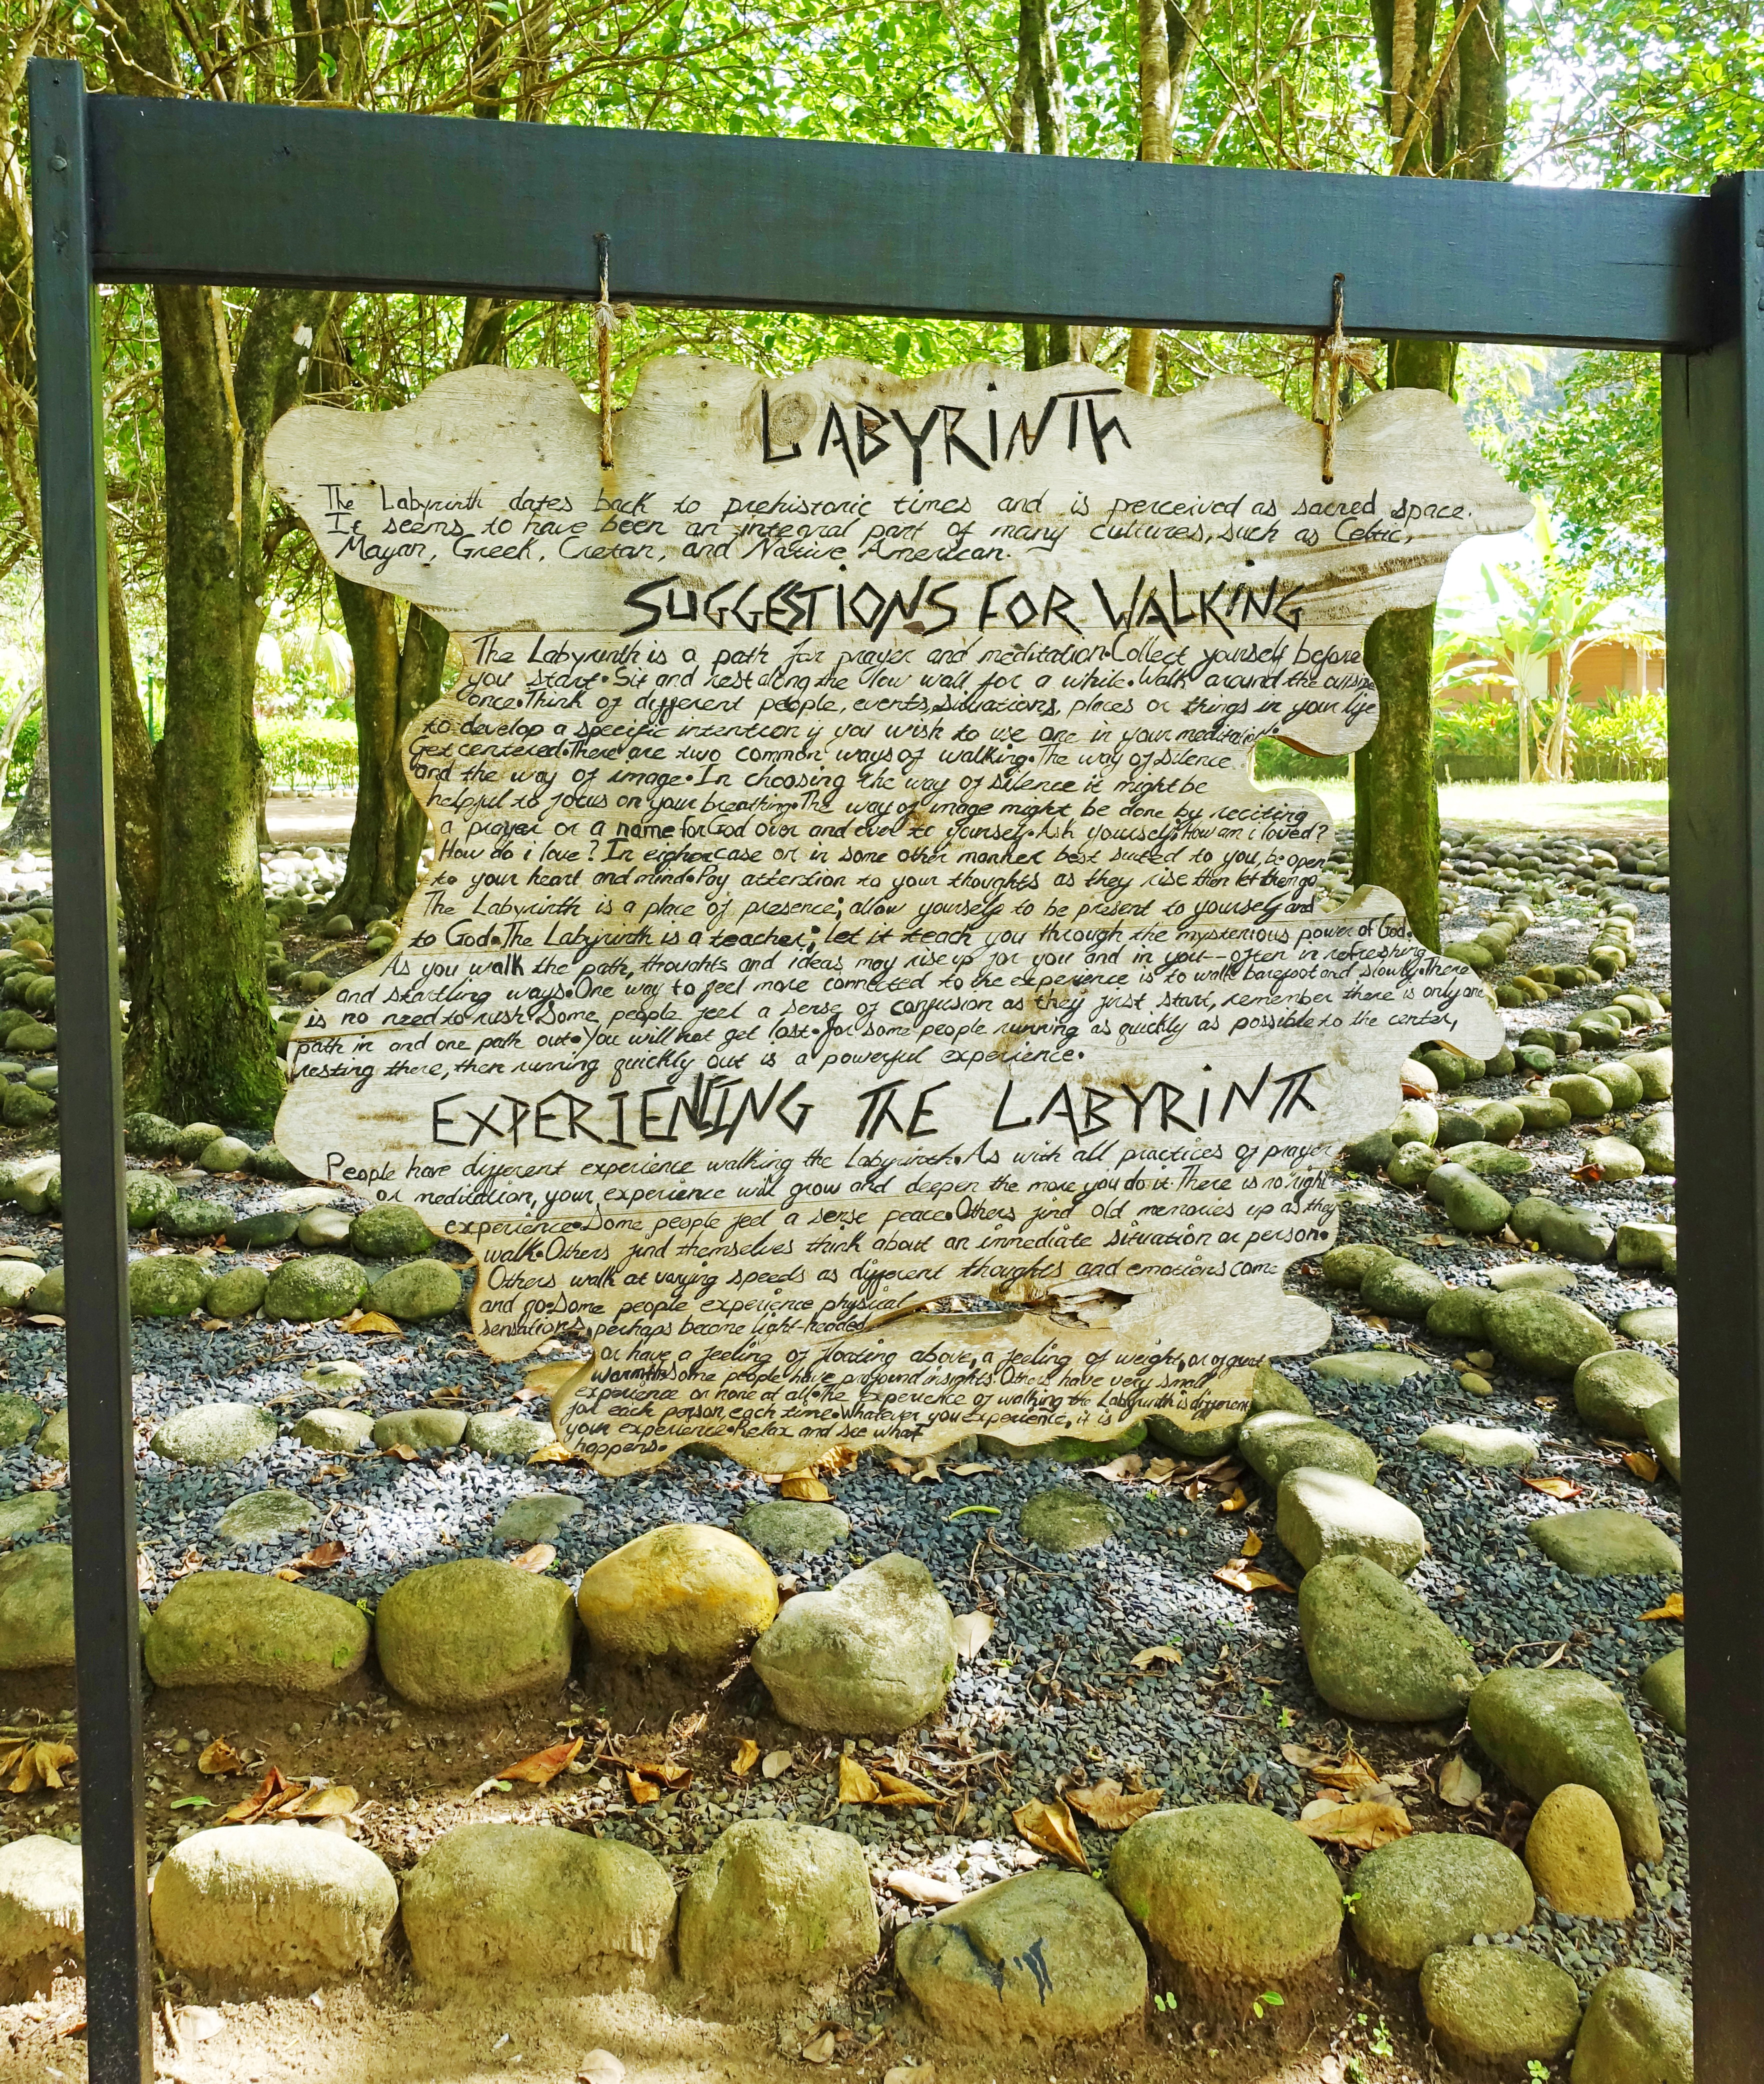 LABYRiNTh
The Labyrinth dates back to prehistoric times and is perceived as sacred space.
It seems to have been an integral part of many cultures, such as Celtic,
Mayan, Greek, Cretan, and Native American.
SUGGESTIONS FOR WALKING
The Labyrinth is a path for prayer and meditation•Collect yourself before
you start•Sit and rest along the low wall for a while•Walk around the outside
once•Think of different people, events, situations, places or things in your life
to develop a specific intention if you wish to use one in your meditation•
Get centered•There are two common ways of walking•The way of silence
and the way of image•In choosing the way of silence it might be
helpful to focus on your breathing•The way of image might be done by reciting
a prayer or a name for God over and over to yourself•Ask yourself:How am i loved?
How do i love? In eigher case or in some other manner best suited to you, be open
to your heart and mind•Pay attention to your thoughts as they rise then let them go
The Labyrinth is a place of presence; allow yourself to be present to yourself and
to God•The Labyrinth is a teacher; let it teach you through the mysterious power of God•
As you walk the path, thoughts and ideas may rise up for you and in you--often in refreshing
and startling ways•One way to feel more connected to the experience is to walk barefoot and slowly•There
is no need to rush•Some people feel a sense of confusion as they first start, remember there is only one
path in and one path out•You will not get lost•for some people running as quickly as possible to the center,
resting there, then running quickly out is a powerful experience•
EXPERIENTING THE LABYRiNTh
People have different experience walking the Labyrinth•As with all practices of prayer
or meditation, your experience will grow and deepen the more you do it•There is no right
experience•Some people feel a sense peace•Others find old memories up as they
walk•Others find themselves think about an immediate situation or person•
Others walk at varying speeds as different thoughts and emotions come
and go•Some people experience physical
sensations, perhaps become light-headed
or have a feeling of floating above, a feeling of weight, or of great
warmth•Some people have profound insights•Others have very small
experience or none at all•The experience of walking the Labyrinth is different
for each person, each time•Whatever you experience, it is
your experience•Relax and see what
happens•